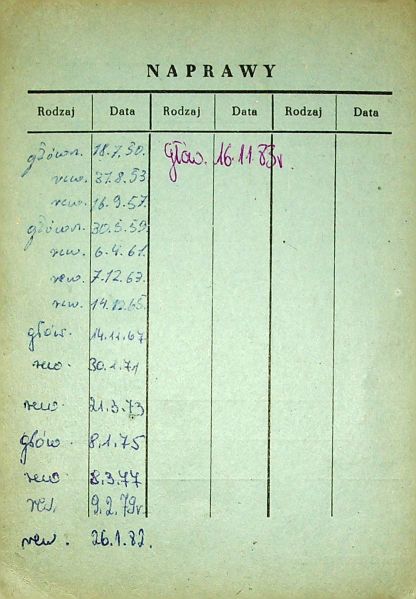 NAPRAWY
Rodzaj Data Rodzaj Data Rodzaj Data
główn. 18.7.50. głów. 16.11.83r.
rew. 31.8.53
rew. 16.9.57.
główn. 30.5.59.
rew. 6.4.61.
rew. 7.12.63.
rew. 14.12.65.
głów. 14.11.67
rew. 30.1.71
rew. 21.3.73
głów. 8.1.75
rew. 8.3.77
rew. 9.2.79r.
rew. 26.1.82.